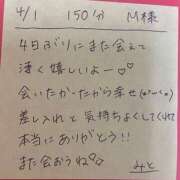 4/1 150分 M様
4日ぶりにまた会えて
凄く嬉しいよー♡♡
会いたかったから幸せ(*˘︶˘*)
差し入れと気持ちよくしてくれて
本当にありがとう!!
また会おうね♡
みと